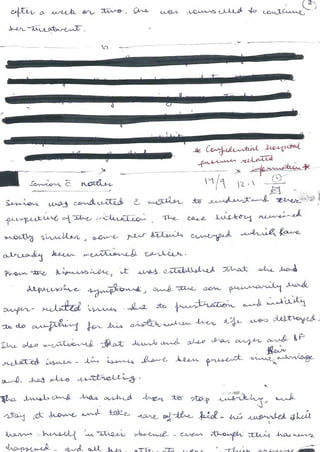 after a week or two. She was counselled to continue
her treatment.
* Confidential hospital
process related
information *
Session c̄ mother
14/9 12.1
Session was conducted c̄ mother to understand
perspective of the situation. The case history remained
mostly similar, some new details emerged which have
already been mentioned earlier.
From the discussion, it was established that she had
depressive symptoms, and the son primarily had
anger-related issues due to frustration and inability
to do anything for his sister when her life was destroyed.
She also mentioned that husband also has anger and BP
related issues - his issues have been present since their marriage
and has also controlling.
The husband has asked her to stop working, and
stay at home and take care of the kid - he worried she'll
harm herself in their absence - even though this has never
happened - and all her